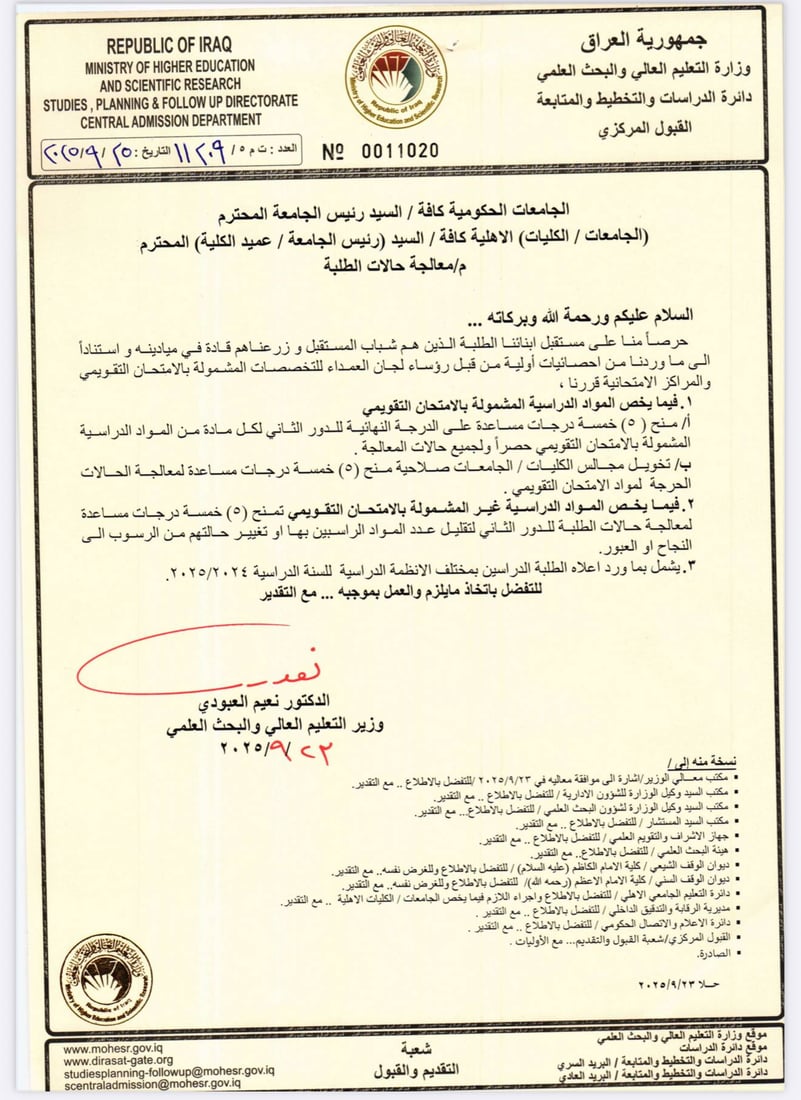 REPUBLIC OF IRAQ
MINISTRY OF HIGHER EDUCATION
AND SCIENTIFIC RESEARCH
STUDIES , PLANNING & FOLLOW UP DIRECTORATE
CENTRAL ADMISSION DEPARTMENT
جمهورية العراق
وزارة التعليم العالي والبحث العلمي
دائرة الدراسات والتخطيط والمتابعة
القبول المركزي
العدد : ت م ٥ / ١١٢٠٩ التاريخ : ٢٠٢٥/٩/٢٥
Nº 0011020
الجامعات الحكومية كافة / السيد رئيس الجامعة المحترم
(الجامعات / الكليات) الاهلية كافة / السيد (رئيس الجامعة / عميد الكلية) المحترم
م/معالجة حالات الطلبة
السلام عليكم ورحمة الله وبركاته ...
حرصاً منا على مستقبل ابنائنا الطلبة الذين هم شباب المستقبل و زرعناهم قادة في ميادينه و استناداً
الى ما وردنا من احصائيات أولية من قبل رؤساء لجان العمداء للتخصصات المشمولة بالامتحان التقويمي
والمراكز الامتحانية قررنا ،
١. فيما يخص المواد الدراسية المشمولة بالامتحان التقويمي
أ/ منح (٥) خمسة درجات مساعدة على الدرجة النهائية للدور الثاني لكل مادة من المواد الدراسية
المشمولة بالامتحان التقويمي حصراً ولجميع حالات المعالجة .
ب/ تخويل مجالس الكليات / الجامعات صلاحية منح (٥) خمسة درجات مساعدة لمعالجة الحالات
الحرجة لمواد الامتحان التقويمي .
٢. فيما يخص المواد الدراسية غير المشمولة بالامتحان التقويمي تمنح (٥) خمسة درجات مساعدة
لمعالجة حالات الطلبة للدور الثاني لتقليل عدد المواد الراسبين بها او تغيير حالتهم من الرسوب الى
النجاح او العبور.
٣. يشمل بما ورد اعلاه الطلبة الدراسين بمختلف الانظمة الدراسية للسنة الدراسية ٢٠٢٥/٢٠٢٤.
للتفضل باتخاذ مايلزم والعمل بموجبه ... مع التقدير
الدكتور نعيم العبودي
وزير التعليم العالي والبحث العلمي
٢٠٢٥/٩/٢٣
نسخة منه إلى /
▪ مكتب معالي الوزير/اشارة الى موافقة معاليه في ٢٠٢٥/٩/٢٣ /للتفضل بالاطلاع .. مع التقدير.
▪ مكتب السيد وكيل الوزارة للشؤون الادارية / للتفضل بالاطلاع .. مع التقدير.
▪ مكتب السيد وكيل الوزارة لشؤون البحث العلمي / للتفضل بالاطلاع... مع التقدير.
▪ مكتب السيد المستشار / للتفضل بالاطلاع .. مع التقدير.
▪ جهاز الاشراف والتقويم العلمي / للتفضل بالاطلاع .. مع التقدير.
▪ هيئة البحث العلمي / للتفضل بالاطلاع.. مع التقدير.
▪ ديوان الوقف الشيعي / كلية الامام الكاظم (عليه السلام) / للتفضل بالاطلاع وللغرض نفسه.. مع التقدير.
▪ ديوان الوقف السني / كلية الامام الاعظم (رحمه الله)/ للتفضل بالاطلاع وللغرض نفسه.. مع التقدير.
▪ دائرة التعليم الجامعي الاهلي / للتفضل بالاطلاع واجراء اللازم فيما يخص الجامعات / الكليات الاهلية .. مع التقدير.
▪ مديرية الرقابة والتدقيق الداخلي / للتفضل بالاطلاع .. مع التقدير .
▪ دائرة الاعلام والاتصال الحكومي / للتفضل بالاطلاع .. مع التقدير .
▪ القبول المركزي/شعبة القبول والتقديم... مع الأوليات .
▪ الصادرة.
حلا ٢٠٢٥/٩/٢٣
موقع وزارة التعليم العالي والبحث العلمي
موقع دائرة الدراسات
دائرة الدراسات والتخطيط والمتابعة / البريد السري
دائرة الدراسات والتخطيط والمتابعة / البريد العادي
شعبة
التقديم والقبول
www.mohesr.gov.iq
www.dirasat-gate.org
studiesplanning-followup@mohesr.gov.iq
scentraladmission@mohesr.gov.iq